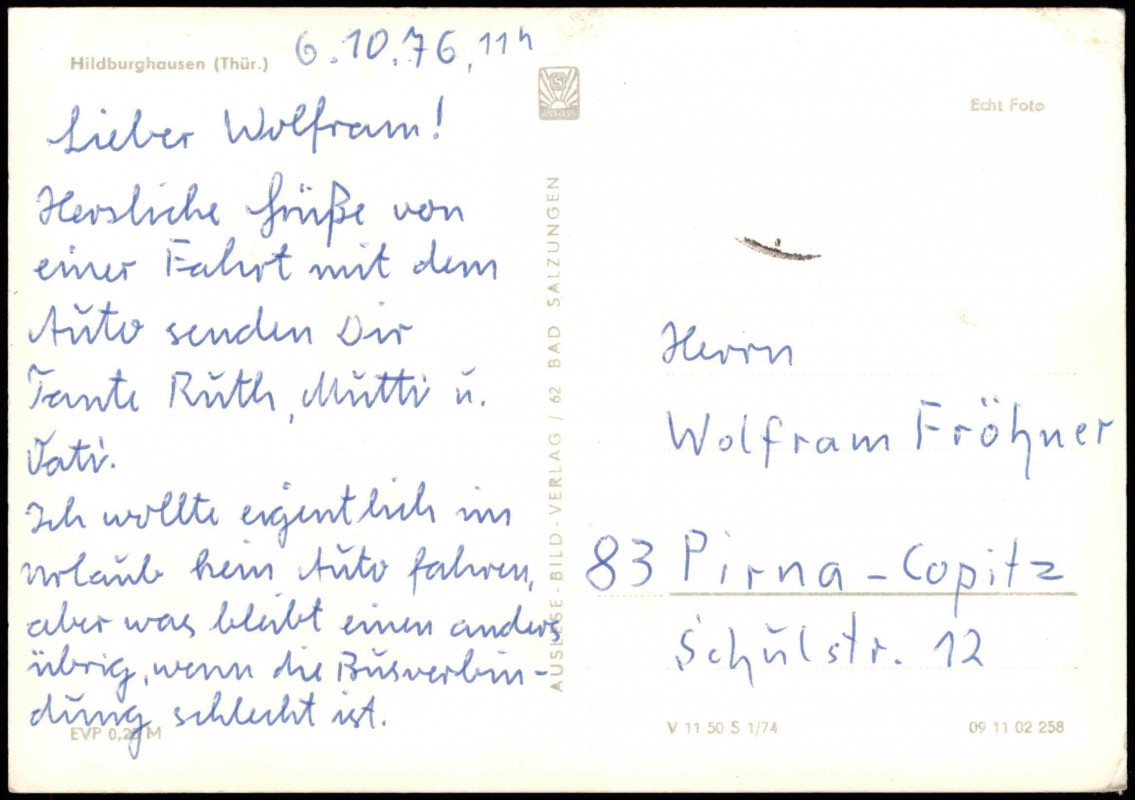 Hildburghausen (Thür.)
6.10.76, 11h
Lieber Wolfram!
Herzliche Grüße von
einer Fahrt mit dem
Auto senden Dir
Tante Ruth, Mutti u.
Vati.
Ich wollte eigentlich im
Urlaub kein Auto fahren,
aber was bleibt einen anders
übrig, wenn die Busverbin-
dung schlecht ist.
EVP 0,20 M
AUSLESE-BILD-VERLAG / 62 BAD SALZUNGEN
Echt Foto
Herrn
Wolfram Fröhner
83 Pirna - Copitz
Schulstr. 12
V 11 50 S 1/74
09 11 02 258